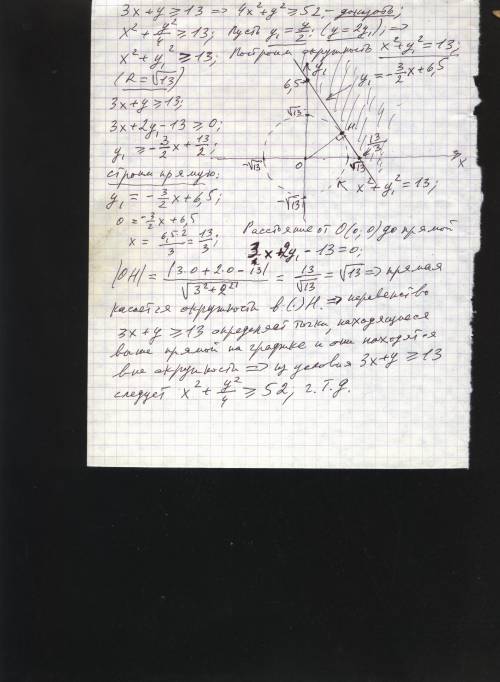 3x+y≥13 ⇒ 4x²+y²≥52 - доказать;
x²+y²/4≥13; Пусть y₁=y/2; (y=2y₁); ⇒
x²+y₁²≥13; Построим окружность x²+y₁²=13;
(R=√13)
y₁
6,5
y₁=-3/2x+6,5
3x+y≥13;
3x+2y₁-13≥0;
y₁≥-3/2x+13/2;
√13
H
13/3
-√13
O
√13
x
-√13
x²+y₁²=13;
строим прямую:
y₁=-3/2x+6,5;
0=-3/2x+6,5
x=6,5·2/3=13/3;
Расстояние от O(0;0) до прямой
3x+2y₁-13=0;
|OH|=|3·0+2·0-13|/√(3²+2²)=13/√13=√13 ⇒ прямая
касается окружности в (·) H. ⇒ неравенство
3x+y≥13 определяет точки, находящиеся
выше прямой на графике и они находятся
вне окружности ⇒ из условия 3x+y≥13
следует x²+y²/4≥52, ч.т.д.